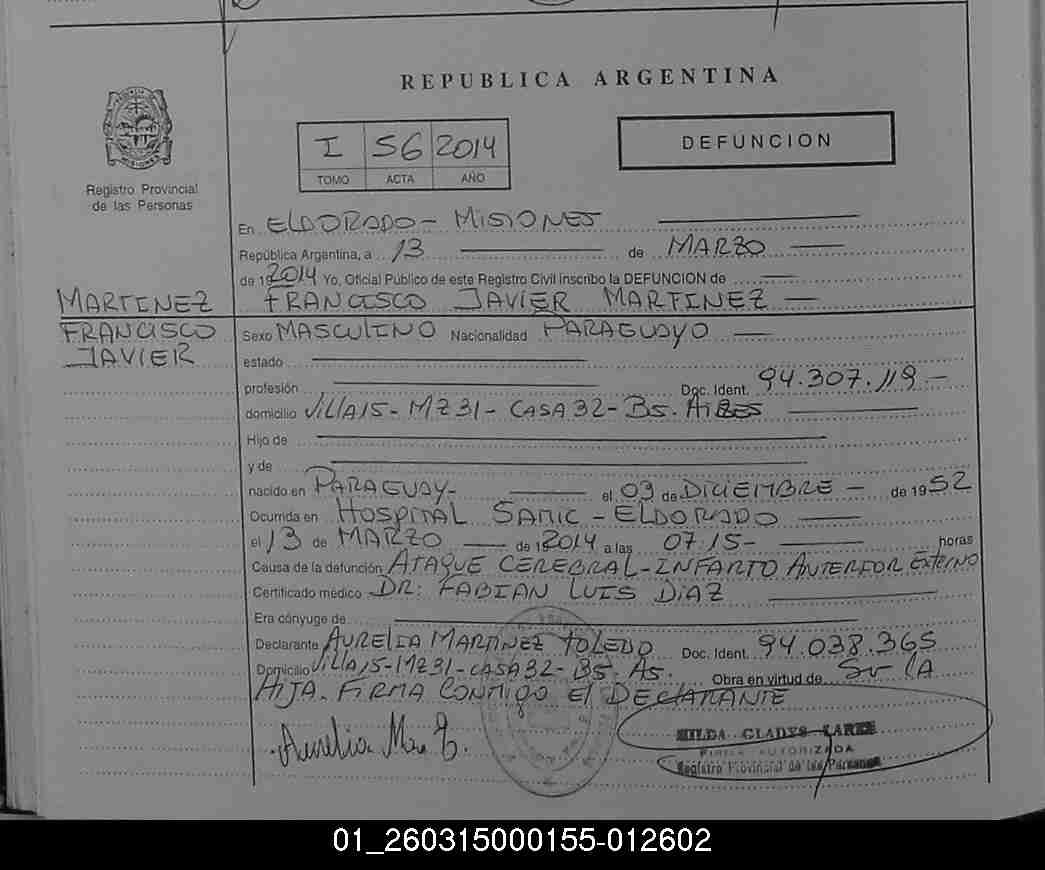 REPUBLICA ARGENTINA
I 56 2014
TOMO ACTA AÑO
DEFUNCION
Registro Provincial
de las Personas
En ELDORADO - MISIONES
República Argentina, a 13 de MARZO
de 2014 Yo, Oficial Público de este Registro Civil inscribo la DEFUNCION de
MARTINEZ FRANCISCO JAVIER MARTINEZ
FRANCISCO
JAVIER
Sexo MASCULINO Nacionalidad PARAGUAYO
estado
profesión Doc. Ident. 94.307.119.-
domicilio VILLA 15 - MZ 31 - CASA 32 - Bs. AIRES
Hijo de
y de
nacido en PARAGUAY- el 03 de DICIEMBRE - de 1952
Ocurrida en HOSPITAL SAMIC - ELDORADO
el 13 de MARZO de 2014 a las 07:15- horas
Causa de la defunción ATAQUE CEREBRAL - INFARTO ANTERIOR EXTERNO
Certificado médico DR: FABIAN LUIS DIAZ
Era cónyuge de
Declarante AURELIA MARTINEZ TOLEDO Doc. Ident. 94.038.365
Domicilio VILLA 15 - MZ 31 - CASA 32 - Bs. As. Obra en virtud de SU
HIJA. FIRMA CONMIGO El DECLARANTE
Aurelia
HILDA GLADYS
FIRMA AUTORIZADA
Registro Provincial de las Personas
01_260315000155-012602